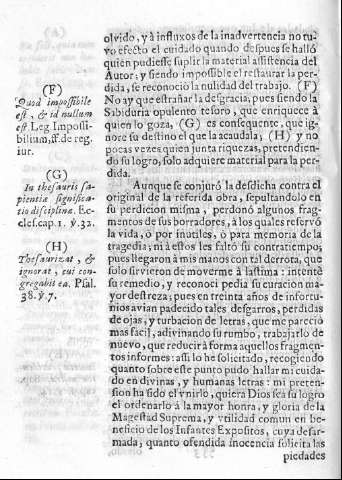 olvido, y à influxos de la inadvertencia no tu-
vo efecto el cuidado quando despues se hallò
quien pudiesse suplir la material assistencia del
Autor; y siendo impossible el restaurar la per-
dida, se reconociò la nulidad del trabajo. (F)
No ay que estrañar la desgracia, pues siendo la
Sabiduria opulento tesoro, que enriquece à
quien lo goza, (G) es consequente, que ig-
nore su destino el que la acaudala; (H) y no
pocas vezes quien junta riquezas, pretendien-
do su logro, solo adquiere material para la per-
dida.
Aunque se conjurò la desdicha contra el
original de la referida obra, sepultandolo en
su perdicion misma, perdonò algunos frag-
mentos de sus borradores, à los quales reservò
la vida, ò por inutiles, ò para memoria de la
tragedia; ni à estos les faltò su contratiempo;
pues llegaron à mis manos con tal derrota, que
solo sirvieron de moverme à lastima: intentè
su remedio, y reconoci pedia su curacion ma-
yor destreza; pues en treinta años de infortu-
nios avian padecido tales desgarros, perdidas
de ojas, y turbacion de letras, que me pareciò
mas facil, adivinando su rumbo, trabajarlo de
nuevo, que reducir à forma aquellos fragmen-
tos informes: assi lo he solicitado, recogiendo
quanto sobre este punto pudo hallar mi cuida-
do en divinas, y humanas letras: mi preten-
sion ha sido el vnirlo, quiera Dios sea su logro
el ordenarlo à la mayor honra, y gloria de la
Magestad Suprema, y vtilidad comun en be-
neficio de los Infantes Expositos, cuya desar-
mada, quanto ofendida inocencia solicita las
piedades
(F)
Quod impossibile
est, & id nullum
est. Leg. Impossi-
bilium, ff. de reg.
iur.
(G)
In thesauris sa-
pientiæ significa-
tio disciplinæ. Ec-
cles. cap. 1. ℣. 32.
(H)
Thesaurizat, &
ignorat, cui con-
gregabit ea. Psal.
38. ℣. 7.